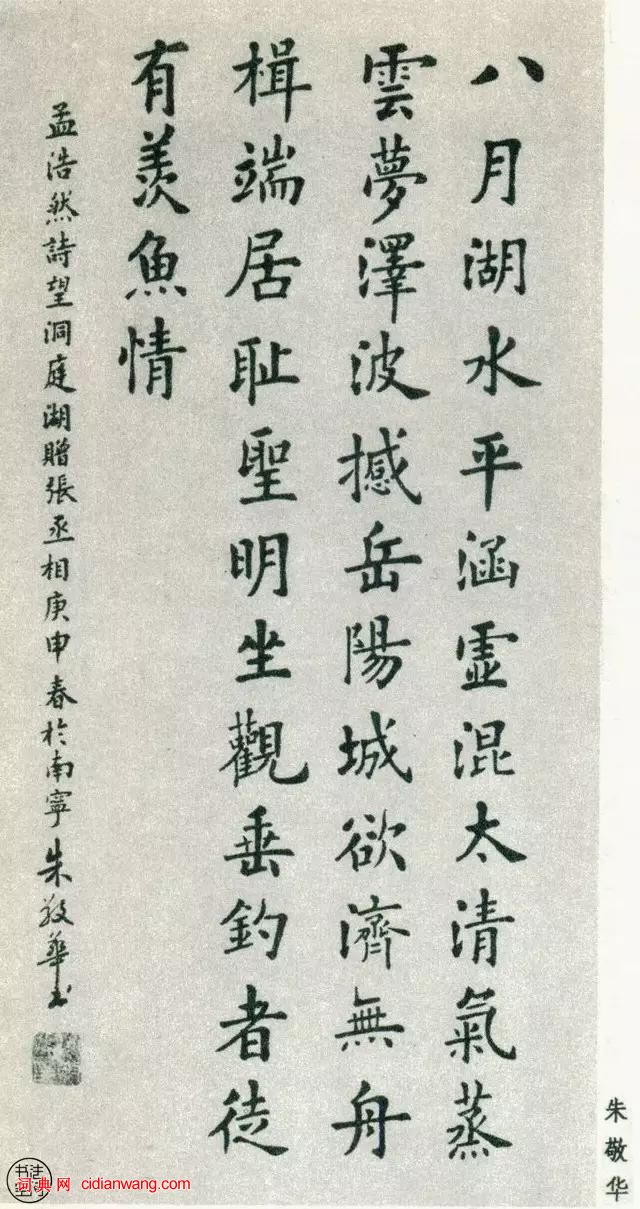 八月湖水平涵虛混太清氣蒸
雲夢澤波撼岳陽城欲濟無舟
楫端居耻聖明坐觀垂釣者徒
有羨魚情
孟浩然詩望洞庭湖贈張丞相庚申春於南寧朱敬華书
朱敬华
词典网 cidianwang.com